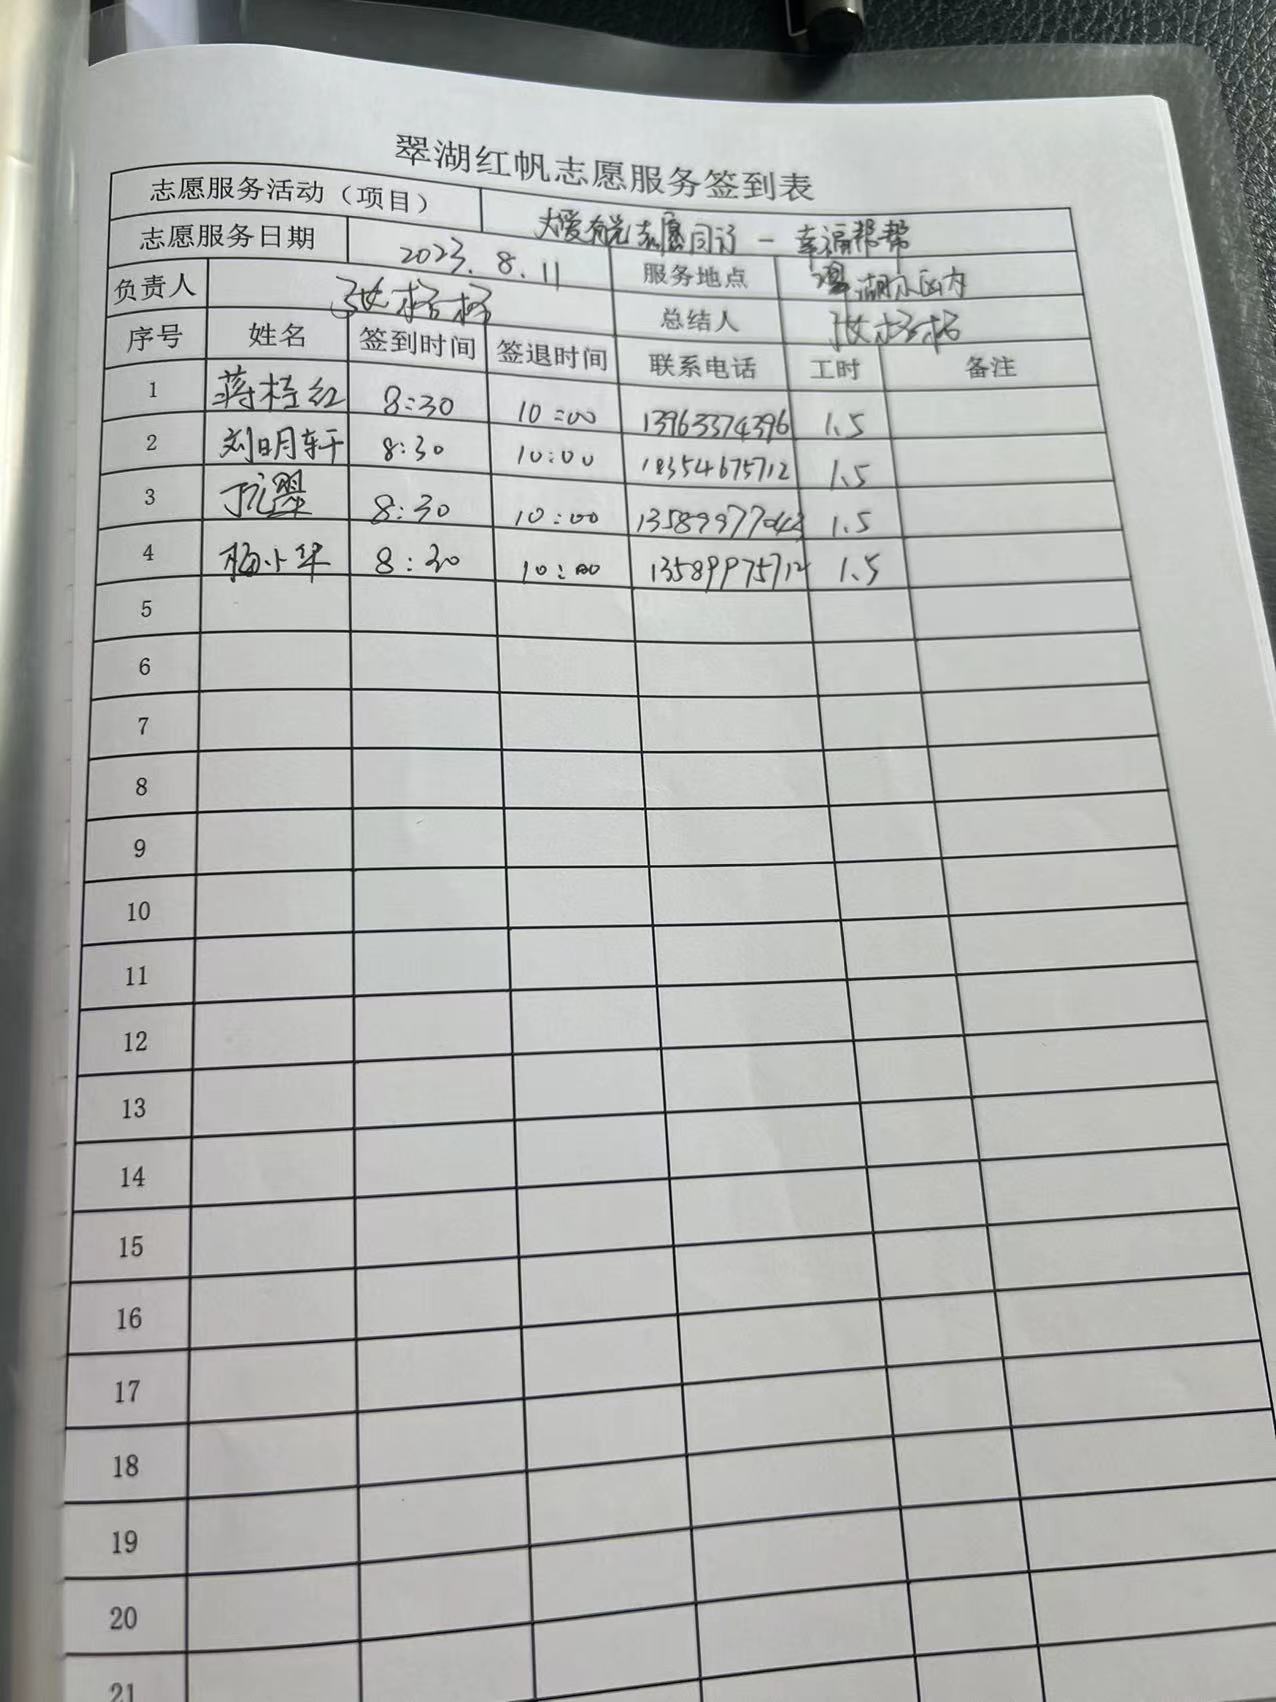 翠湖红帆志愿服务签到表
志愿服务活动（项目） 大爱有光志愿同行 - 幸福帮帮
志愿服务日期 2023.8.11 服务地点 翠湖小区内
负责人 张格格 总结人 张格格
序号 姓名 签到时间 签退时间 联系电话 工时 备注
1 蒋桂红 8:30 10:00 13963374396 1.5
2 刘明轩 8:30 10:00 18354675712 1.5
3 8:30 10:00 1.5
4 杨小华 8:30 10:00 13589975712 1.5
5
6
7
8
9
10
11
12
13
14
15
16
17
18
19
20
21